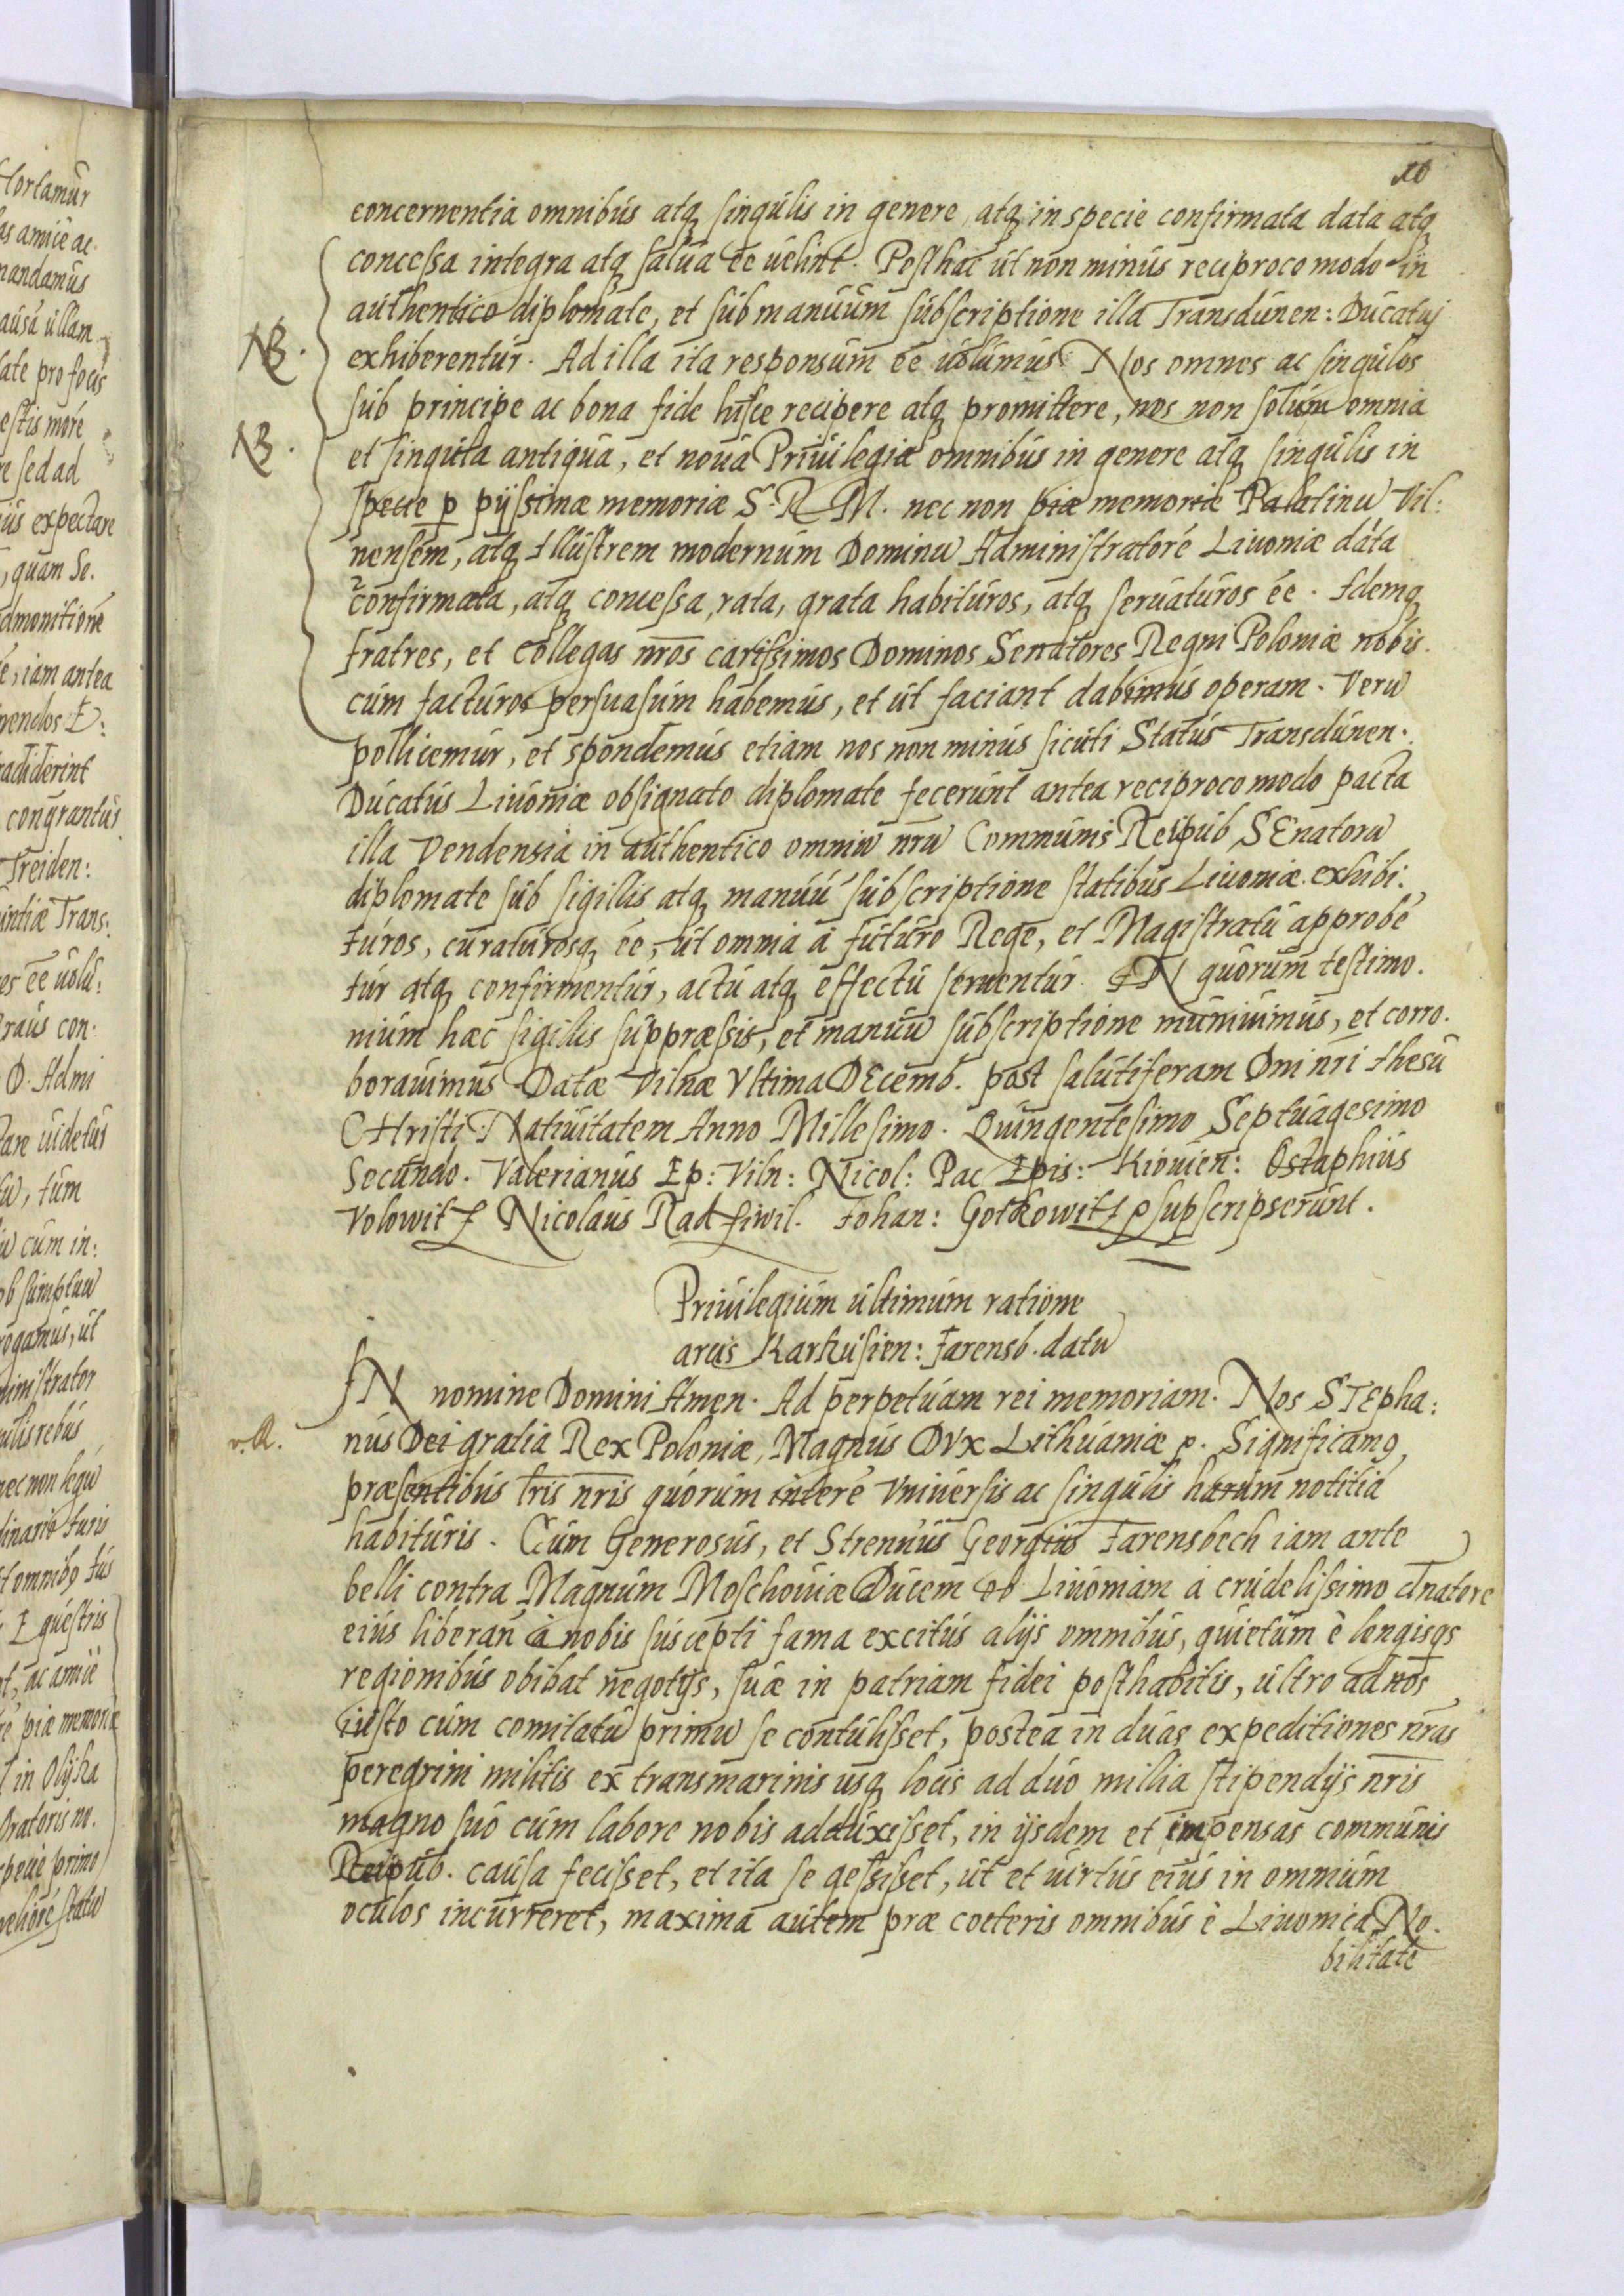 10
concernentia omnibus atq singulis in genere, atq in specie confirmata data atq
concessa integra atq salua ee uelint. Posthac ut non minus reciproco modo in
authentico diplomate, et sub manuum subscriptione illa Transdunen: Ducatui
NB. exhiberentur. Ad illa ita responsum ee uolumus: Nos omnes ac singulos
sub principe ac bona fide hisce recipere atq promittere, nos non solum omnia
NB. et singula antiqua, et noua Priuilegia omnibus in genere atq singulis in
specie p pijssimæ memoriæ S. R. M. nec non piæ memoriæ Palatinu Vil:
nensem, atq Illustrem modernum Dominu Administratore Liuoniæ data
confirmata, atq concessa, rata, grata habituros, atq seruaturos ee. Idemq
fratres, et collegas nros carissimos Dominos Senatores Regni Poloniæ nobis.
cum facturos persuasum habemus, et ut faciant dabimus operam. Veru
pollicemur, et spondemus etiam nos non minus sicuti Status Transdunen.
Ducatus Liuoniæ obsignato diplomate fecerunt antea reciproco modo pacta
illa Vendensia in authentico omniu nru Communis Reipub SEnatoru
diplomate sub sigillis atq manuu subscriptione statibus Liuoniæ exhibi:
turos, curaturosq ee, ut omnia a futuro Rege, et Magistratu approbe
tur atq confirmentur, actu atq effectu seruentur. IN quorum testimo.
nium hæc sigillis suppræssis, et manuu subscriptione muniuimus, et corro.
borauimus Datæ Vilnæ Vltima DEcemb. post salutiferam Dni nri Ihesu
CHristi Natiuitatem Anno Millesimo. Quingentesimo Septuagesimo
Secundo. Valerianus Ep: Viln: Nicol: Pac Epis: Kiouien: Ostaphius
Volowitz Nicolaus Radziwil. Johan: Gotkowitz p subscripserunt.
Priuilegium ultimum ratione
arcis Karkusien: Farensb. datu
IN nomine Domini Amen. Ad perpetuam rei memoriam. Nos STEpha:
v. R. nus Dei gratia Rex Poloniæ, Magnus DVx Lithuaniæ p. Significamq
præsentibus lris nris quorum intere Vniuersis ac singulis harum notitia
habituris. Cum Generosus, et Strennus Georgius Farensbech iam ante
belli contra Magnum Moschouiæ Ducem ob Liuoniam a crudelissimo
eius liberan a nobis suscepti fama excitus alijs omnibus, quietum è longisqs
regionibus obibat negotijs, suæ in patriam fidei posthabitis, ultro ad nos
iusto cum comitatu primu se contulisset, postea in duas expeditiones nras
peregrini militis ex transmarinis usq locis ad duo millia stipendijs nris
magno suo cum labore nobis adduxisset, in ijsdem et impensas communis
Reipub. causa fecisset, et ita se gessisset, ut et uirtus eius in omnium
oculos incurreret, maxima autem præ cœteris omnibus è Liuonica No.
bilitate